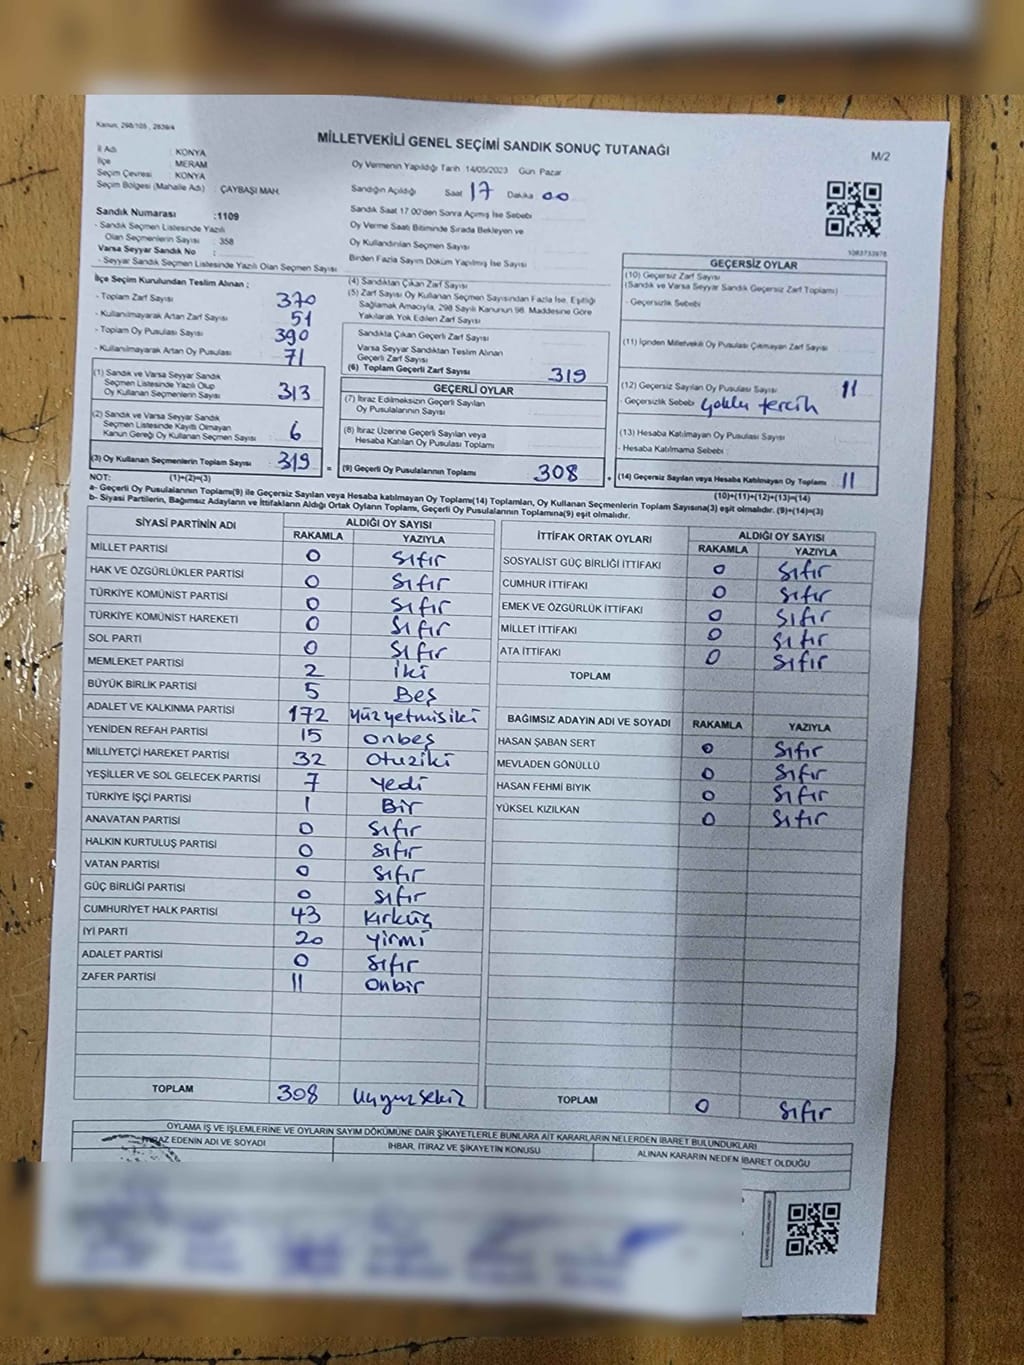 Kanun, 298/105 , 2839/4
MİLLETVEKİLİ GENEL SEÇİMİ SANDIK SONUÇ TUTANAĞI
M/2
İl Adı : KONYA
İlçe : MERAM
Seçim Çevresi : KONYA
Seçim Bölgesi (Mahalle Adı) : ÇAYBAŞI MAH.
Oy Vermenin Yapıldığı Tarih 14/05/2023 Gün Pazar
Sandığın Açıldığı Saat 17 Dakika 00
Sandık Saat 17.00'den Sonra Açımış İse Sebebi
Oy Verme Saati Bitiminde Sırada Bekleyen ve
Oy Kullandırılan Seçmen Sayısı
Birden Fazla Sayım Döküm Yapılmış İse Sayısı
Sandık Numarası :1109
- Sandık Seçmen Listesinde Yazılı
Olan Seçmenlerin Sayısı : 358
Varsa Seyyar Sandık No :
- Seyyar Sandık Seçmen Listesinde Yazılı Olan Seçmen Sayısı
1083733978
İlçe Seçim Kurulundan Teslim Alınan ;
- Toplam Zarf Sayısı 370
- Kullanılmayarak Artan Zarf Sayısı 51
- Toplam Oy Pusulası Sayısı 390
- Kullanılmayarak Artan Oy Pusulası 71
(1) Sandık ve Varsa Seyyar Sandık
Seçmen Listesinde Yazılı Olup
Oy Kullanan Seçmenlerin Sayısı 313
(2) Sandık ve Varsa Seyyar Sandık
Seçmen Listesinde Kayıtlı Olmayan
Kanun Gereği Oy Kullanan Seçmen Sayısı 6
(3) Oy Kullanan Seçmenlerin Toplam Sayısı 319
(4) Sandıktan Çıkan Zarf Sayısı
(5) Zarf Sayısı Oy Kullanan Seçmen Sayısından Fazla İse, Eşitliği
Sağlamak Amacıyla, 298 Sayılı Kanunun 98. Maddesine Göre
Yakılarak Yok Edilen Zarf Sayısı
Sandıkta Çıkan Geçerli Zarf Sayısı
Varsa Seyyar Sandıktan Teslim Alınan
Geçerli Zarf Sayısı
(6) Toplam Geçerli Zarf Sayısı 319
GEÇERLİ OYLAR
(7) İtiraz Edilmeksizin Geçerli Sayılan
Oy Pusulalarının Sayısı
(8) İtiraz Üzerine Geçerli Sayılan veya
Hesaba Katılan Oy Pusulası Toplamı
= (9) Geçerli Oy Pusulalarının Toplamı 308
GEÇERSİZ OYLAR
(10) Geçersiz Zarf Sayısı
(Sandık ve Varsa Seyyar Sandık Geçersiz Zarf Toplamı)
- Geçersizlik Sebebi
(11) İçinden Milletvekili Oy Pusulası Çıkmayan Zarf Sayısı
(12) Geçersiz Sayılan Oy Pusulası Sayısı 11
- Geçersizlik Sebebi Çoklu tercih
(13) Hesaba Katılmayan Oy Pusulası Sayısı
- Hesaba Katılmama Sebebi
+ (14) Geçersiz Sayılan veya Hesaba Katılmayan Oy Toplamı 11
NOT: (1)+(2)=(3)
(10)+(11)+(12)+(13)=(14)
a- Geçerli Oy Pusulalarının Toplamı(9) ile Geçersiz Sayılan veya Hesaba katılmayan Oy Toplamı(14) Toplamları, Oy Kullanan Seçmenlerin Toplam Sayısına(3) eşit olmalıdır. (9)+(14)=(3)
b- Siyasi Partilerin, Bağımsız Adayların ve İttifakların Aldığı Ortak Oyların Toplamı, Geçerli Oy Pusulalarının Toplamına(9) eşit olmalıdır.
SİYASİ PARTİNİN ADI ALDIĞI OY SAYISI
RAKAMLA YAZIYLA
MİLLET PARTİSİ 0 Sıfır
HAK VE ÖZGÜRLÜKLER PARTİSİ 0 Sıfır
TÜRKİYE KOMÜNİST PARTİSİ 0 Sıfır
TÜRKİYE KOMÜNİST HAREKETİ 0 Sıfır
SOL PARTİ 0 Sıfır
MEMLEKET PARTİSİ 2 iki
BÜYÜK BİRLİK PARTİSİ 5 Beş
ADALET VE KALKINMA PARTİSİ 172 Yüzyetmisiki
YENİDEN REFAH PARTİSİ 15 onbeş
MİLLİYETÇİ HAREKET PARTİSİ 32 otuziki
YEŞİLLER VE SOL GELECEK PARTİSİ 7 Yedi
TÜRKİYE İŞÇİ PARTİSİ 1 Bir
ANAVATAN PARTİSİ 0 Sıfır
HALKIN KURTULUŞ PARTİSİ 0 Sıfır
VATAN PARTİSİ 0 Sıfır
GÜÇ BİRLİĞİ PARTİSİ 0 Sıfır
CUMHURİYET HALK PARTİSİ 43 Kırküç
İYİ PARTİ 20 Yirmi
ADALET PARTİSİ 0 Sıfır
ZAFER PARTİSİ 11 Onbir
TOPLAM 308 Üçyüzsekiz
İTTİFAK ORTAK OYLARI ALDIĞI OY SAYISI
RAKAMLA YAZIYLA
SOSYALİST GÜÇ BİRLİĞİ İTTİFAKI 0 Sıfır
CUMHUR İTTİFAKI 0 Sıfır
EMEK VE ÖZGÜRLÜK İTTİFAKI 0 Sıfır
MİLLET İTTİFAKI 0 Sıfır
ATA İTTİFAKI 0 Sıfır
TOPLAM
BAĞIMSIZ ADAYIN ADI VE SOYADI RAKAMLA YAZIYLA
HASAN ŞABAN SERT 0 Sıfır
MEVLADEN GÖNÜLLÜ 0 Sıfır
HASAN FEHMİ BIYIK 0 Sıfır
YÜKSEL KIZILKAN 0 Sıfır
TOPLAM 0 Sıfır
OYLAMA İŞ VE İŞLEMLERİNE VE OYLARIN SAYIM DÖKÜMÜNE DAİR ŞİKAYETLERLE BUNLARA AİT KARARLARIN NELERDEN İBARET BULUNDUKLARI
İTİRAZ EDENİN ADI VE SOYADI İHBAR, İTİRAZ VE ŞİKAYETİN KONUSU ALINAN KARARIN NEDEN İBARET OLDUĞU